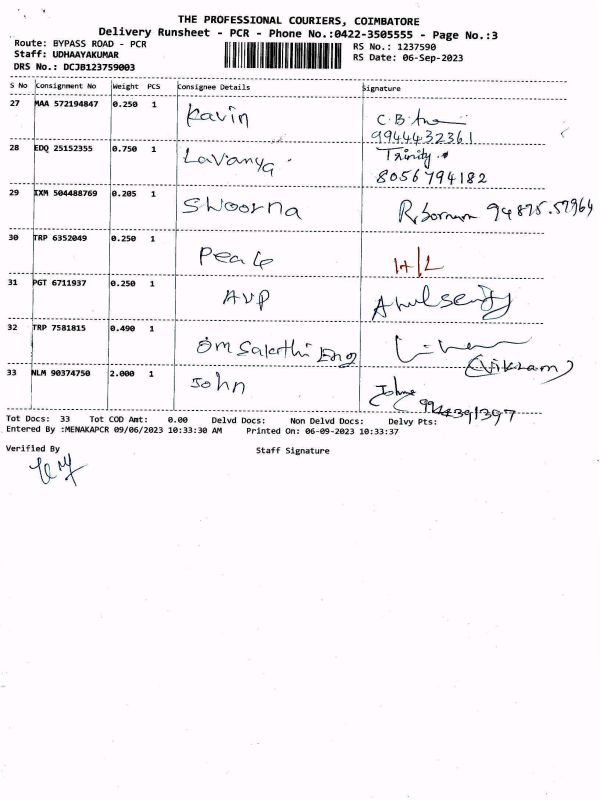 THE PROFESSIONAL COURIERS, COIMBATORE
Delivery Runsheet - PCR - Phone No.:0422-3505555 - Page No.:3
Route: BYPASS ROAD - PCR
Staff: UDHAAYAKUMAR
DRS No.: DCJB123759003
RS No.: 1237590
RS Date: 06-Sep-2023
S No Consignment No Weight PCS Consignee Details Signature
27 MAA 572194847 0.250 1 Kavin C.B.
9944432361
28 EDQ 25152355 0.750 1 Lavanya Trinity
8056794182
29 IXM 504488769 0.205 1 Swoorna
30 TRP 6352049 0.250 1 H/L
31 PGT 6711937 0.250 1 AVP
32 TRP 7581815 0.490 1 Om Sakthi Eng
(Vikram)
33 NLM 90374750 2.000 1 John John
9944391397
Tot Docs: 33 Tot COD Amt: 0.00 Delvd Docs: Non Delvd Docs: Delvy Pts:
Entered By :MENAKAPCR 09/06/2023 10:33:30 AM Printed On: 06-09-2023 10:33:37
Verified By Staff Signature